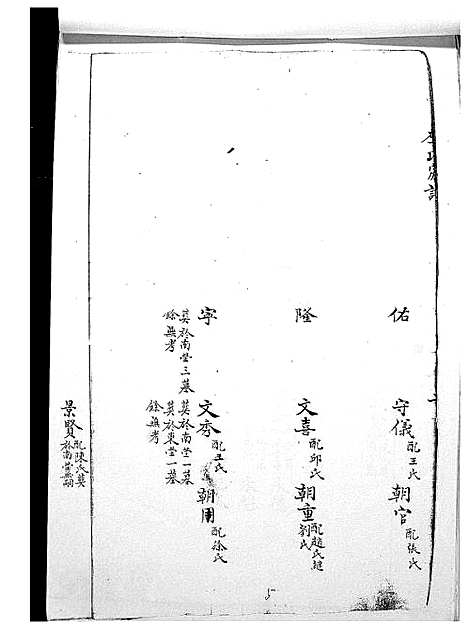 李氏家譜
佑
守儀 配王氏 朝官 配張氏
隆
文喜 配邱氏 朝重 配趙氏 劉氏
字
葬於南塋三墓
餘無考
文秀 配王氏 朝用 配徐氏
葬於南塋一墓
葬於東塋一墓
餘無考
景賢 配陳氏葬
於南塋
5